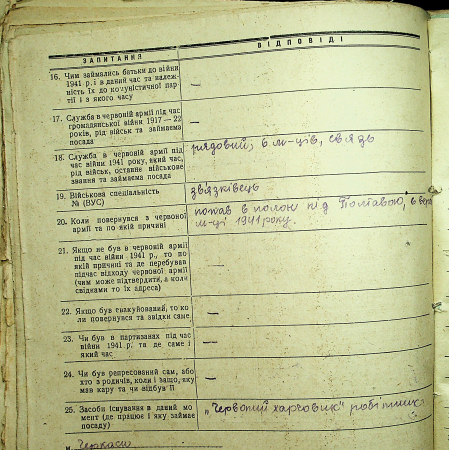 ЗАПИТАННЯ
ВІДПОВІДІ
16. Чим займались батьки до війни
1941 р. і в даний час та належ-
ність їх до комуністичної пар-
тії і з якого часу
—
17. Служба в червоній армії під час
громадянської війни 1917—22
років, рід військ та займаєма
посада
—
18. Служба в червоній армії під
час війни 1941 року, який час,
рід військ, останнє військове
звання та займаєма посада
рядовий, 6 м-ців, связь
19. Військова спеціальність
№ (ВУС)
звязківець
20. Коли повернувся з червоної
армії та по якій причині
попав в полон під Полтавою, в
м-ці 1941 року.
21. Якщо не був в червоній армії
під час війни 1941 р., то по
якій причині та де перебував
підчас відходу червоної армії
(чим може підтвердити, а коли
свідками то їх адреса)
—
22. Якщо був евакуйований, то ко-
ли повернувся та звідки саме
—
23. Чи був в партизанах під час
війни 1941 р. та де саме і
який час
—
24. Чи був репресований сам, або
хто з родичів, коли і защо, яку
мав кару та чи відбув її
—
25. Засоби існування в даний мо-
мент (де працює і яку займає
посаду)
„Червоний харчовик" робітник
м. Черкаси